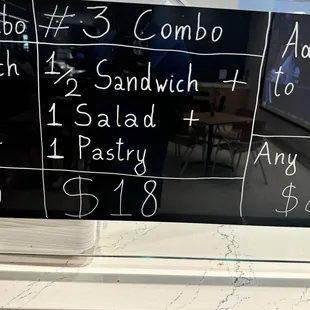 # 3 Combo
1/2 Sandwich +
1 Salad +
1 Pastry
$18
to
Any